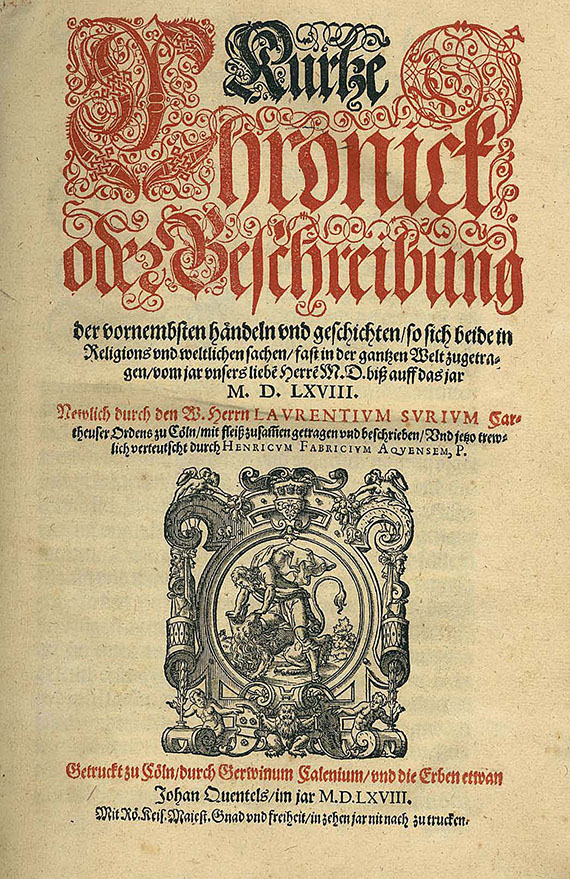 Kurtze
Chronick
oder Beschreibung
der vornembsten händeln vnd geschichten/so sich beide in
Religions vnd weltlichen sachen/fast in der gantzen Welt zugetra-
gen/vom jar vnsers liebē Herrē M.D. biß auff das jar
M. D. LXVIII.
Newlich durch den W. Herrn LAVRENTIVM SVRIVM Car-
theuser Ordens zu Cöln/mit fleiß zusam̄en getragen vnd beschrieben/Vnd jetzo trew-
lich verteutscht durch HENRICVM FABRICIVM AQVENSEM, P.
Getruckt zu Cöln/durch Gerwinum Calenium/vnd die Erben etwan
Johan Quentels/im jar M.D.LXVIII.
Mit Rö. Keis. Maiest. Gnad vnd freiheit/in zehen jar nit nach zu trucken.